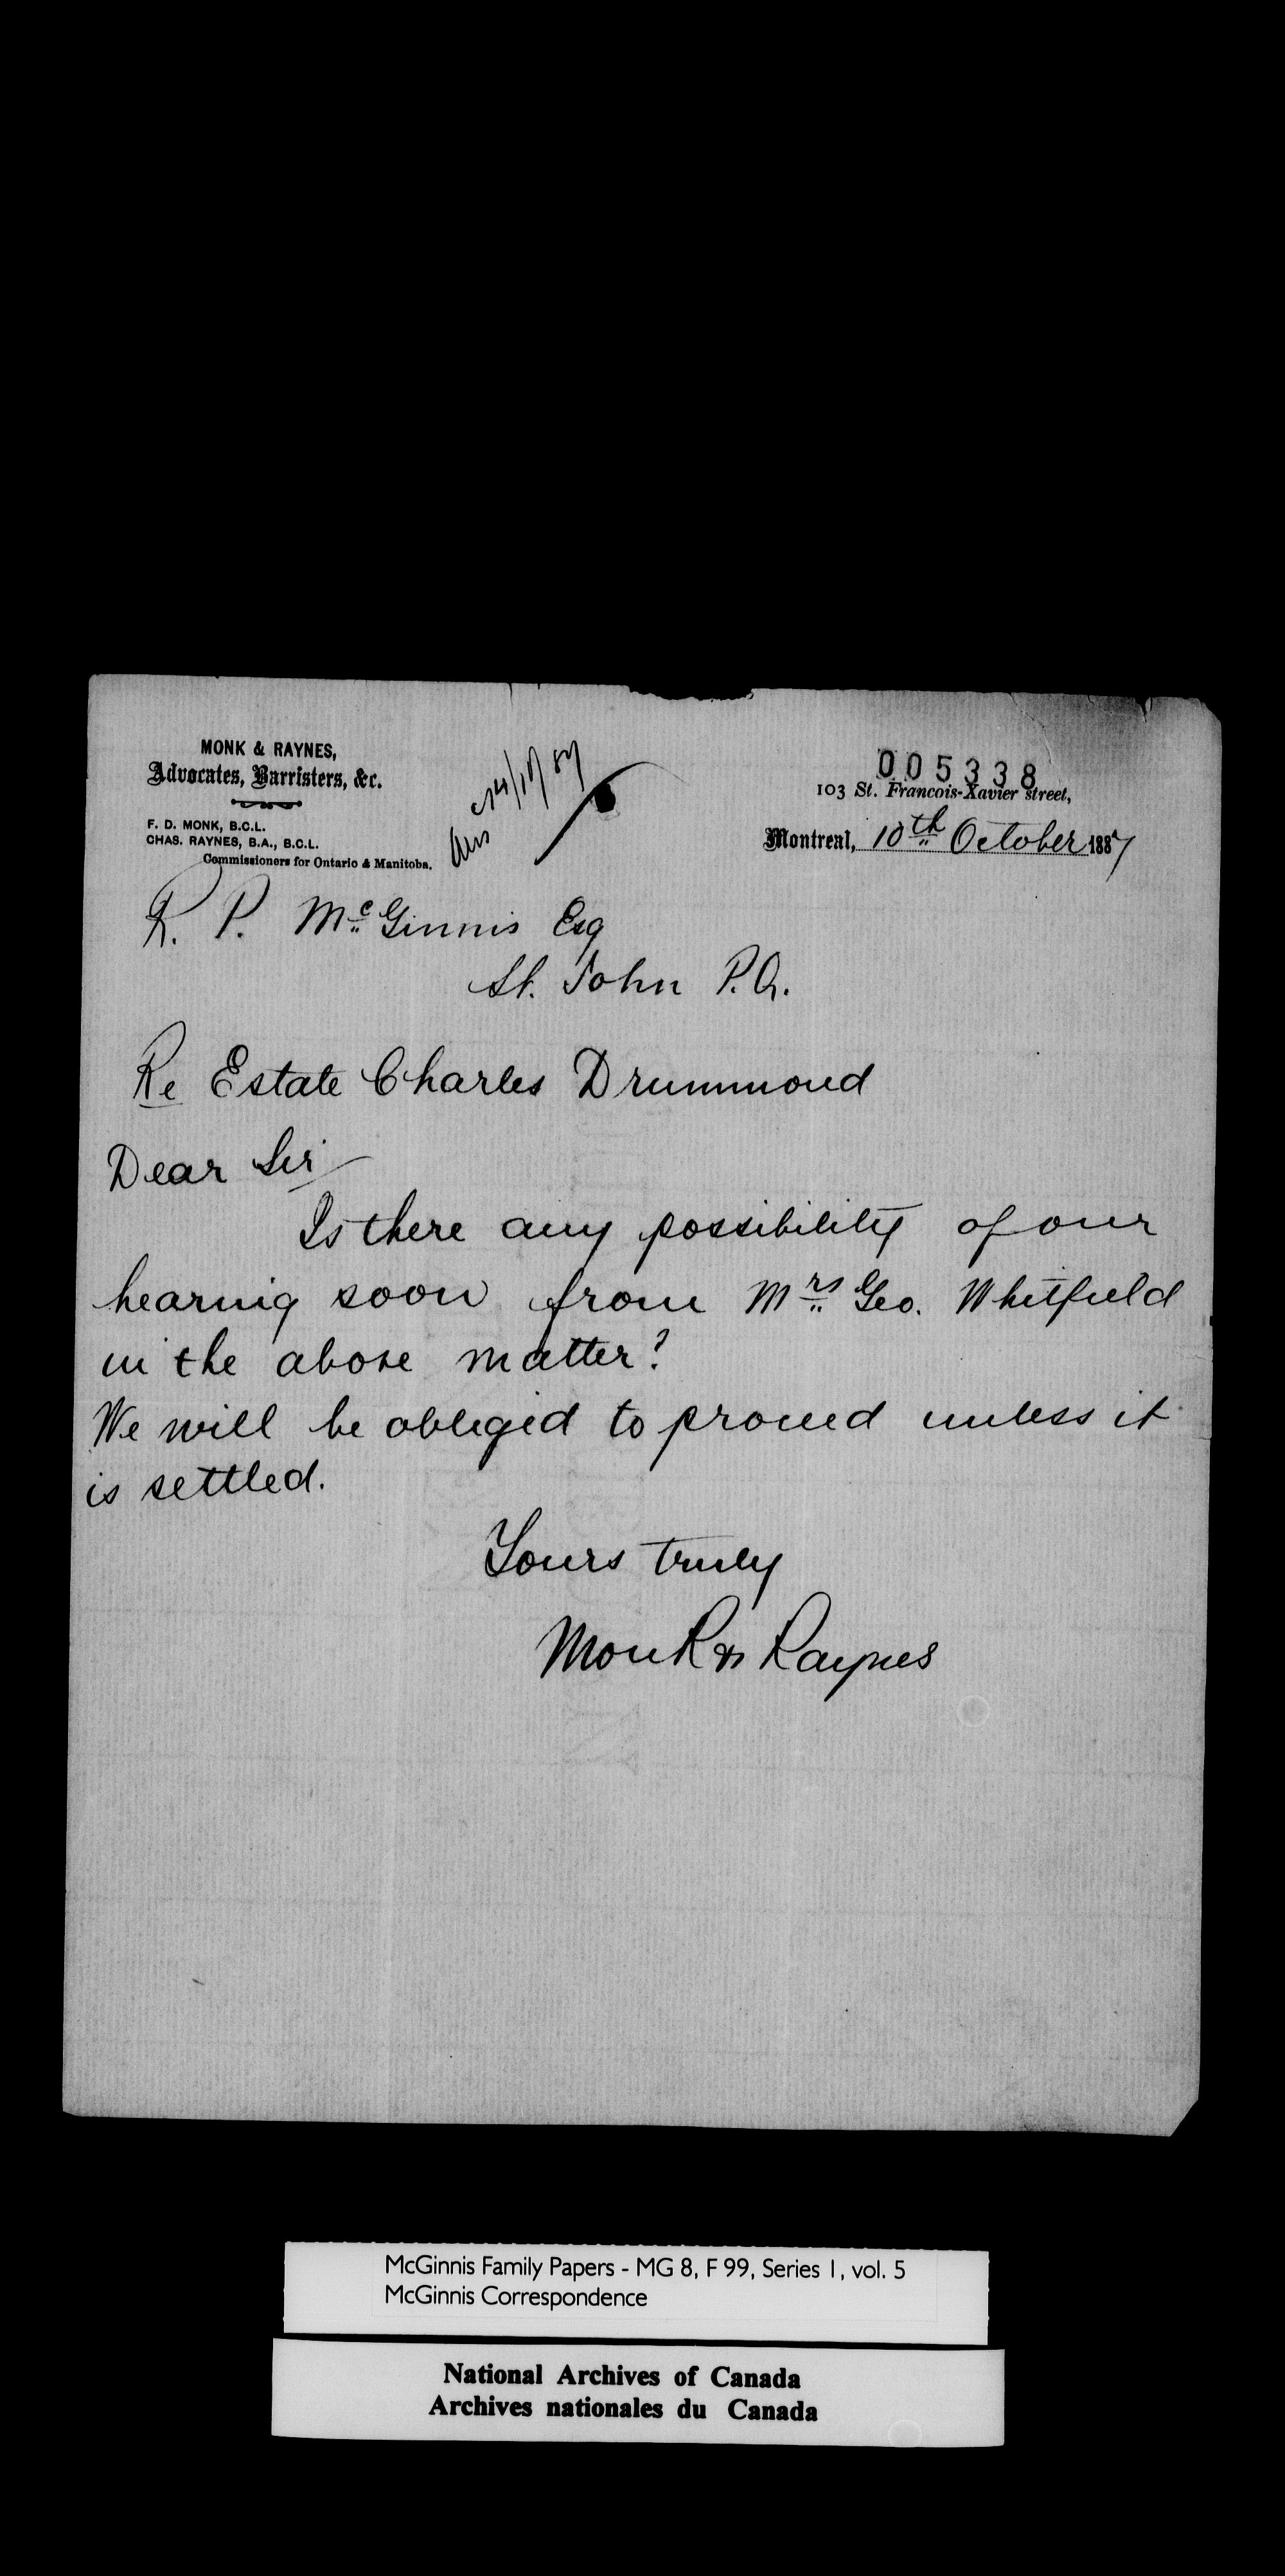 MONK & RAYNES,
Advocates, Barristers, &c.
F. D. MONK, B.C.L.
CHAS. RAYNES, B.A., B.C.L.
Commissioners for Ontario & Manitoba.
Ans
005338
103 St. Francois-Xavier street,
Montreal, 10th October 1887
R. P. McGinnis Esq
St. John P.Q.
Re Estate Charles Drummond
Dear Sir
Is there any possibility of our
hearing soon from Mrs Geo. Whitfield
in the above matter?
We will be obliged to proceed unless it
is settled.
Yours truly
Monk & Raynes
McGinnis Family Papers - MG 8, F 99, Series 1, vol. 5
McGinnis Correspondence
National Archives of Canada
Archives nationales du Canada